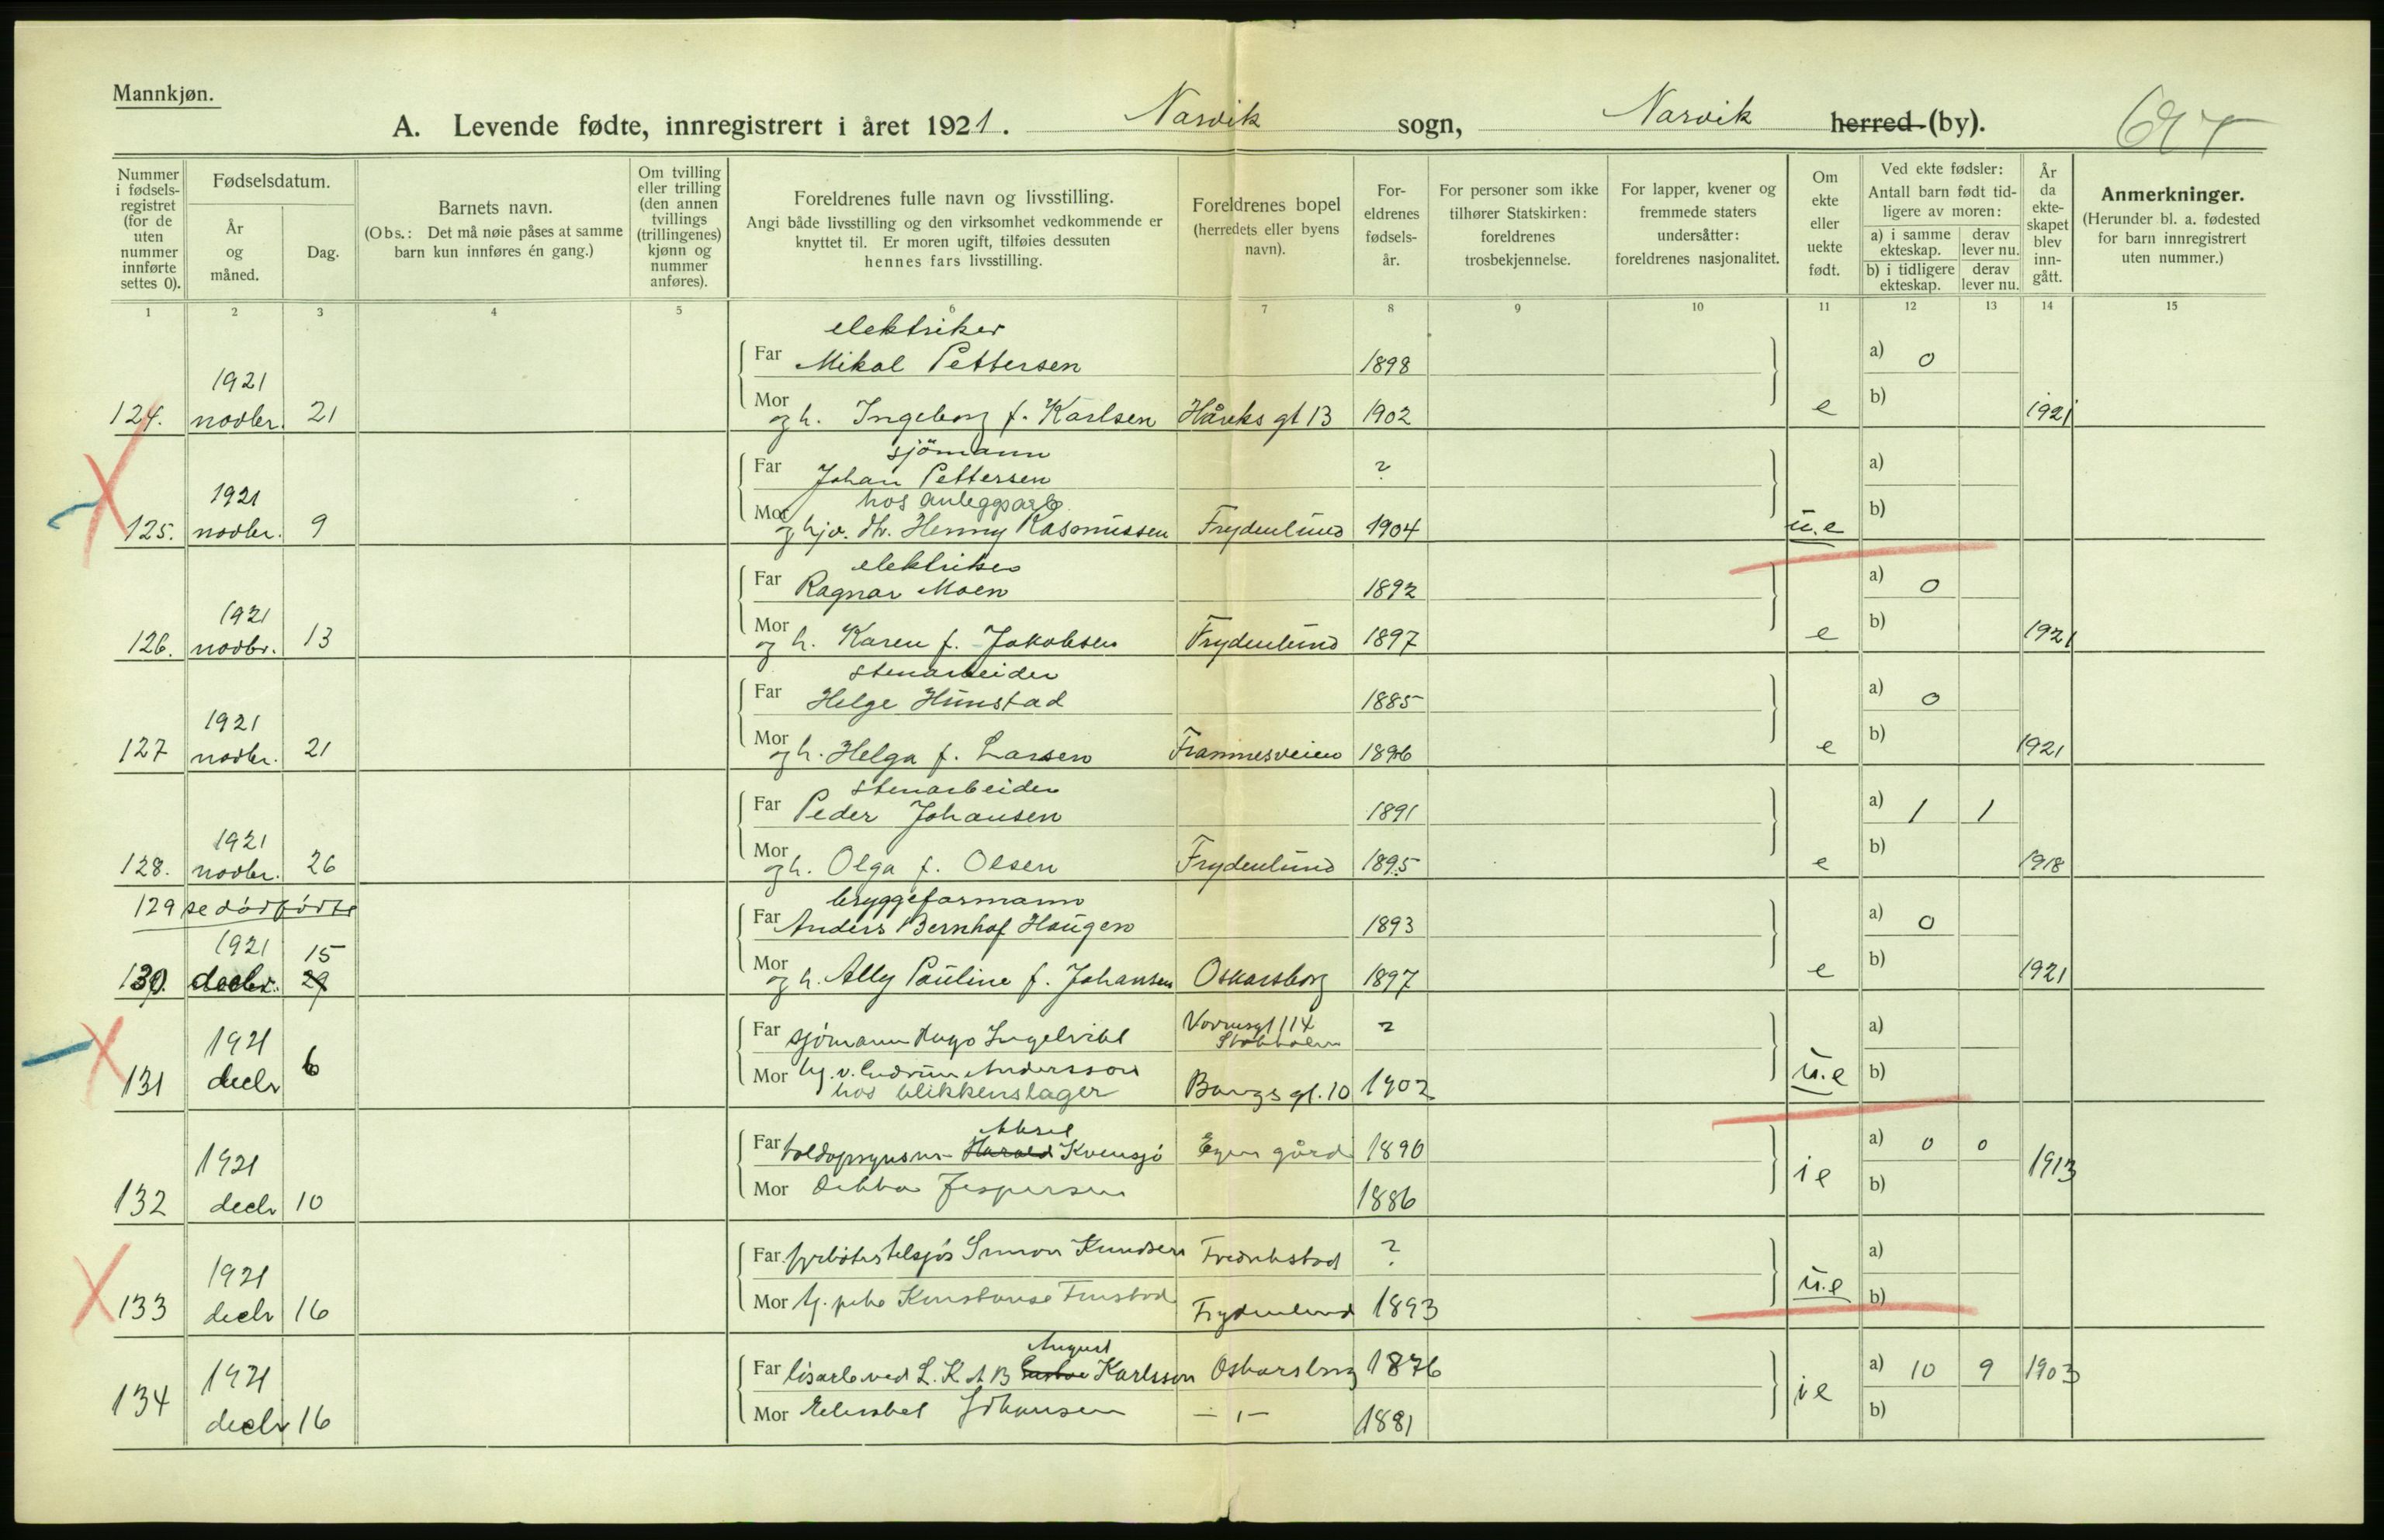 Mannkjøn.
A. Levende fødte, innregistrert i året 1921. Narvik sogn, Narvik herred (by).
Nummer i fødsels-registret (for de uten nummer innførte settes 0).
Fødselsdatum.
År og måned.
Dag.
Barnets navn.
(Obs.: Det må nøie påses at samme barn kun innføres én gang.)
Om tvilling eller trilling (den annen tvillings (trillingenes) kjønn og nummer anføres).
Foreldrenes fulle navn og livsstilling.
Angi både livsstilling og den virksomhet vedkommende er knyttet til. Er moren ugift, tilføies dessuten hennes fars livsstilling.
Foreldrenes bopel (herredets eller byens navn).
For-eldrenes fødsels-år.
For personer som ikke tilhører Statskirken: foreldrenes trosbekjennelse.
For lapper, kvener og fremmede staters undersåtter: foreldrenes nasjonalitet.
Om ekte eller uekte født.
Ved ekte fødsler:
Antall barn født tid-ligere av moren:
a) i samme ekteskap. derav lever nu.
b) i tidligere ekteskap. derav lever nu.
År da ekte-skapet blev inn-gått.
Anmerkninger.
(Herunder bl. a. fødested for barn innregistrert uten nummer.)
1 2 3 4 5 6 7 8 9 10 11 12 13 14 15
elektriker
Far Mikal Pettersen 1898 a) 0
1921
124. novbr. 21 Mor og h. Ingeborg f. Karlsen Håreks gt 13 1902 e b) 1921
sjömann
Far Johan Pettersen ? a)
1921 hos anleggsarb.
125. novbr. 9 Mor og hjv. dtr. Henny Rasmussen Frydenlund 1904 u.e b)
elektriker
Far Ragnar Moen 1892 a) 0
1921
126. novbr. 13 Mor og h. Karen f. Jakobsen Frydenlund 1897 e b) 1921
stenarbeider
Far Helge Hunstad 1885 a) 0
1921
127 novbr. 21 Mor og h. Helga f. Larsen Framnesveien 1896 e b) 1921
stenarbeider
Far Peder Johansen 1891 a) 1 1
1921
128. novbr. 26 Mor og h. Olga f. Olsen Frydenlund 1895 e b) 1918
129 se dödfödte
bryggeformann
Far Anders Bernhof Haugen 1893 a) 0
1921 15
130. decbr. 29 Mor og h. Ally Pauline f. Johansen Oskarsborg 1897 e b) 1921
Far sjömann Hugo 114 Stockholm ? a)
1921
131 decbr 6 Mor hj. v. Gudrun Andersson 1902 u.e b)
hos blikkenslager gt. 10
Aksel
Far toldopsynsm Harald Kvensjö Egen gård 1890 a) 0 0
1921 ie 1913
132 decbr 10 Mor Jespersen 1886 b)
Far Simon Knudsen Fredrikstad ? a)
1921
133 decbr 16 Mor Konstanse Finstad Frydenlund 1893 u.e b)
August
Far lösarb ved L.K.A.B Gustav Karlsson Oskarsborg 1876 a) 10 9 1903
1921 ie
134 decbr 16 Mor Elisabet Johansen — " — 1881 b)